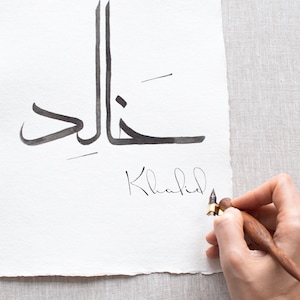 خالِد
Khalid